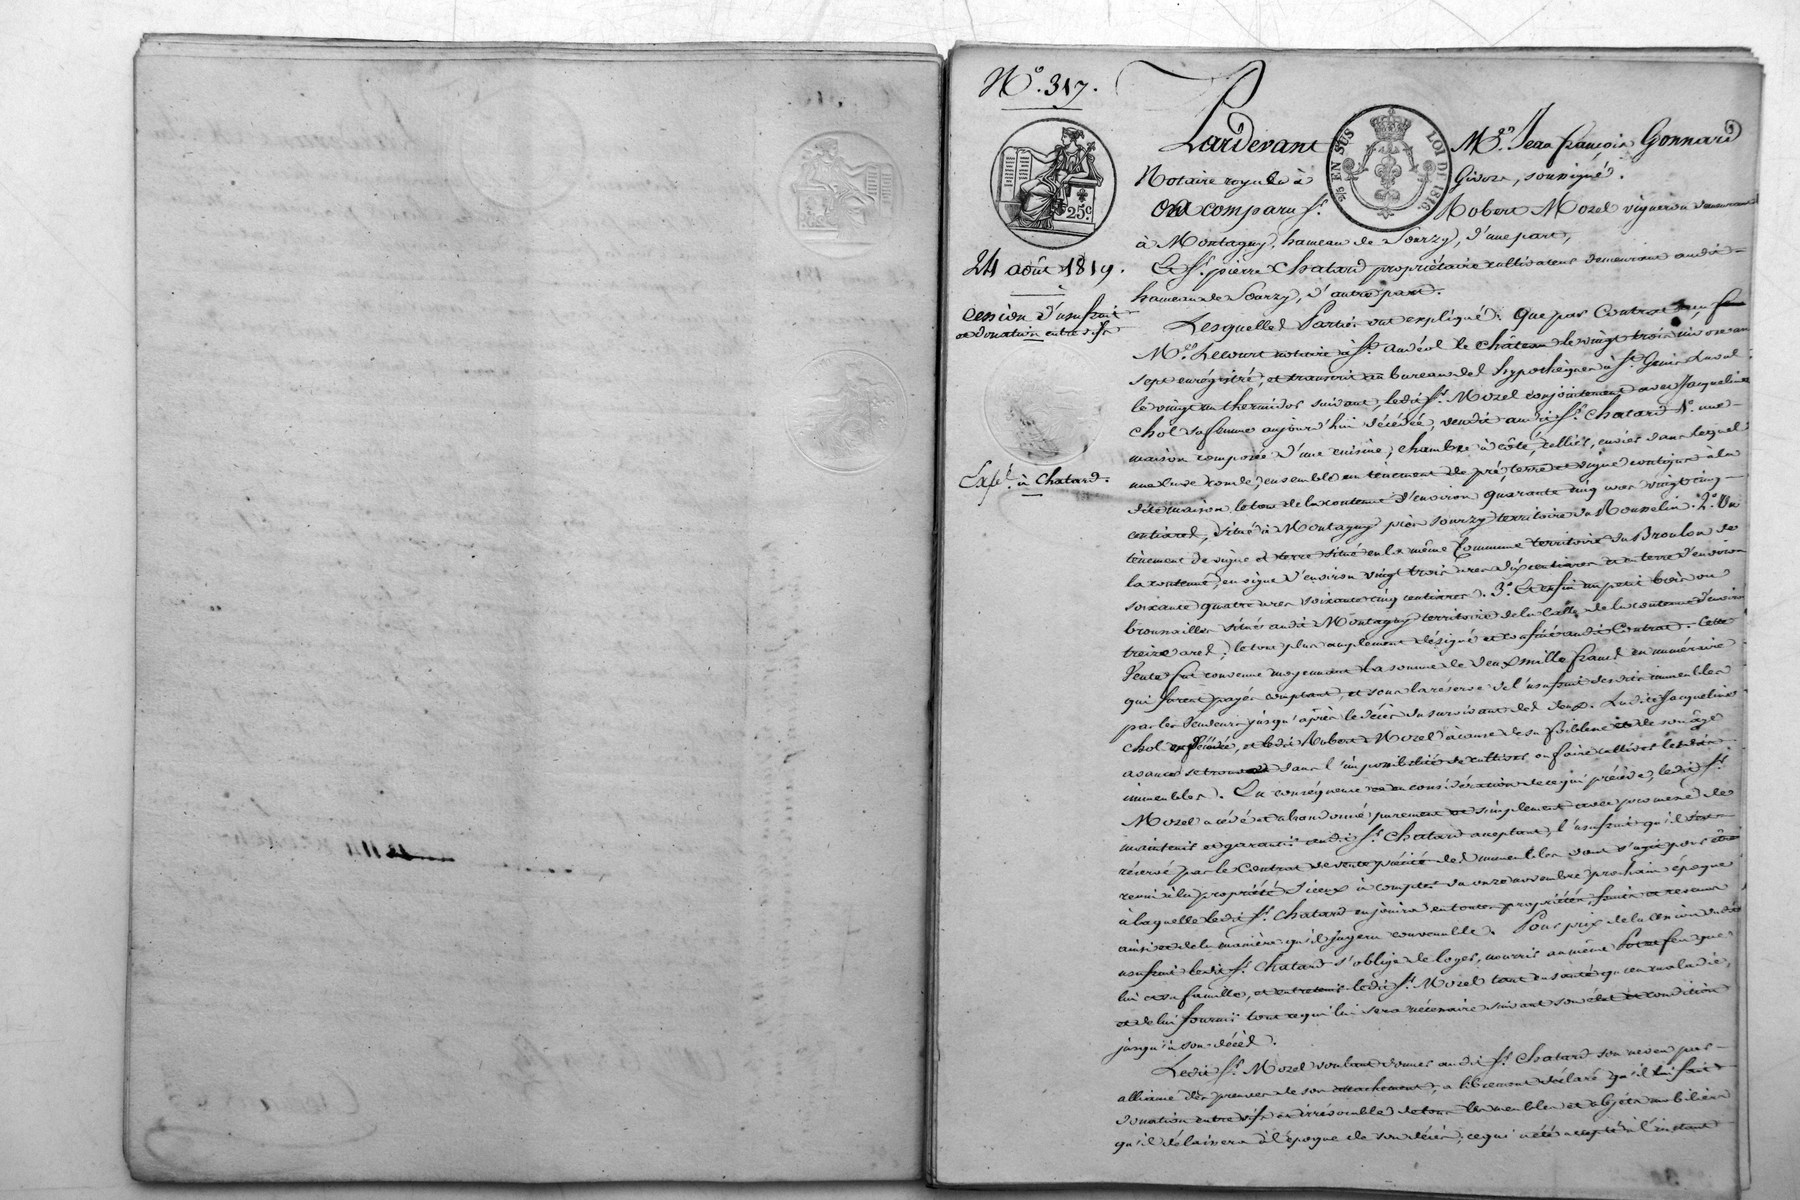 N.° 317.
Pardevant M.e Jean françois Gonnard
Notaire royal à Givors, soussigné.
2/5 EN SUS
LOI DE 1816
25c
Ont comparu s.r Robert Mozel vigneron demeurant
à Montagny, hameau de Sourzy, d'une part,
24 août 1819.
Et s.r pierre Chatard propriétaire cultivateur demeurant audit
hameau de Sourzy, d'autre part.
Cession d'usufruit
et donation entre vifs
Lesquelles Parties ont expliqué. que par Contrat
M.e Lecourt notaire à s.t andéol le château le vingt trois nivose an
sept enrégistré, et transcrit au bureau des hypothèques à s.t Genis Laval
le vingt un thermidor suivant, ledit s.r Mozel conjointement avec Jacqueline
Chol sa femme aujourd'hui décédée, vendit audit s.r Chatard 1.° une
maison composée d'une cuisine, chambre à côté, cellier, cuvier dans lequel
une cuve ronde, ensemble un tènement de pré, terre et vigne contigu à la
Exp.é à Chatard.
dite maison le tout de la contenue d'environ quarante cinq ares vingt cinq
centiares, situé à Montagny près Sourzy territoire du Rousselin. 2.° Un
tènement de vigne et terre situé en la même Commune territoire du Broulon de
la contenue, en vigne d'environ vingt trois ares dix centiares et en terre d'environ
soixante quatre ares soixante cinq centiares. 3.° Et enfin un petit bois ou
brousailles situé audit Montagny territoire de la de la contenue d'environ
treize ares, le tout plus amplement désigné et confiné audit Contrat. Cette
Vente fut convenue moyennant la somme de deux mille francs en numéraire
qui furent payés comptant, et sous la réserve de l'usufruit desdits immeubles
par les vendeurs jusqu'après le décès du survivant des deux. Ladite Jacqueline
Chol est décédée, et ledit Robert Mozel à cause de sa foiblesse et de son âge
avancé se trouve dans l'impossibilité de cultiver ou faire cultiver lesdits
immeubles. En conséquence et en considération de ce qui précède, ledit s.r
Mozel a cédé et abandonné purement et simplement avec promesse de
maintenir et garantir audit s.r Chatard acceptant, l'usufruit qu'il s'est
réservé par le Contrat de vente précité des immeubles dont s'agit pour être
réuni à la propriété d'iceux à compter du onze novembre prochain époque
à laquelle ledit s.r Chatard en jouira en toute propriété, fruits et revenus
ainsi et de la manière qu'il jugera convenable. Pour prix de la Cession dudit
usufruit ledit s.r Chatard s'oblige de loger, nourrir au même Pot et feu que
lui et sa famille, et entretenir ledit s.r Mozel tant en santé qu'en maladie,
et de lui fournir tout ce qui lui sera nécessaire suivant son état et condition
jusqu'à son décès.
Ledit s.r Mozel voulant donner audit s.r Chatard son neveu par
alliance des preuves de son attachement, a librement déclaré qu'il lui fait
donation entre vifs et irrévocable de tous les meubles et objets mobiliers
qu'il délaissera à l'époque de son décès, ce qui a été accepté à l'instant